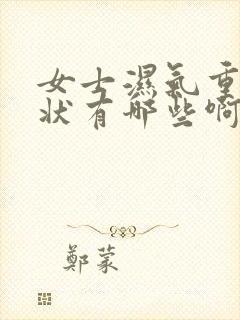 女士濕氣重
狀有哪些啊
鄭蒙